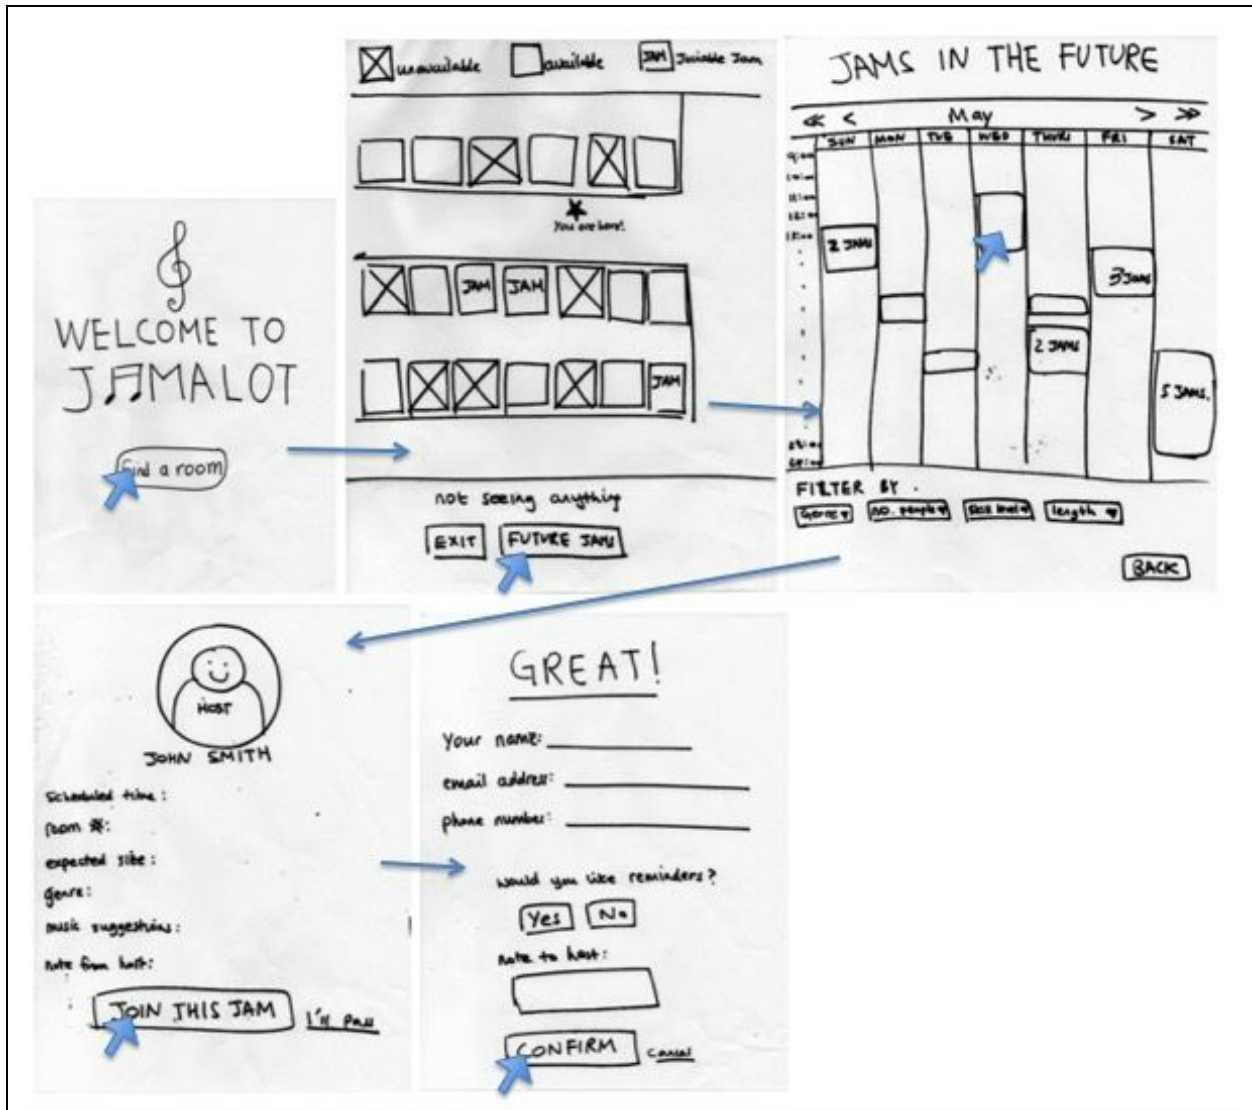 WELCOME TO
JAMALOT
find a room
unavailable
available
JAM
Joinable Jam
You are here!
JAM
JAM
JAM
not seeing anything
EXIT
FUTURE JAMS
JAMS IN THE FUTURE
<< < May > >>
SUN MON TUE WED THUR FRI SAT
9:00
10:00
11:00
12:00
13:00
2 JAMS
3 JAMS
2 JAMS
5 JAMS.
FILTER BY.
Genre
no. people
skill level
length
BACK
HOST
JOHN SMITH
Scheduled time:
room #:
expected size:
genre:
music suggestions:
note from host:
JOIN THIS JAM
I'll pass
GREAT!
Your name:
email address:
phone number:
would you like reminders?
Yes
No
note to host:
CONFIRM
Cancel